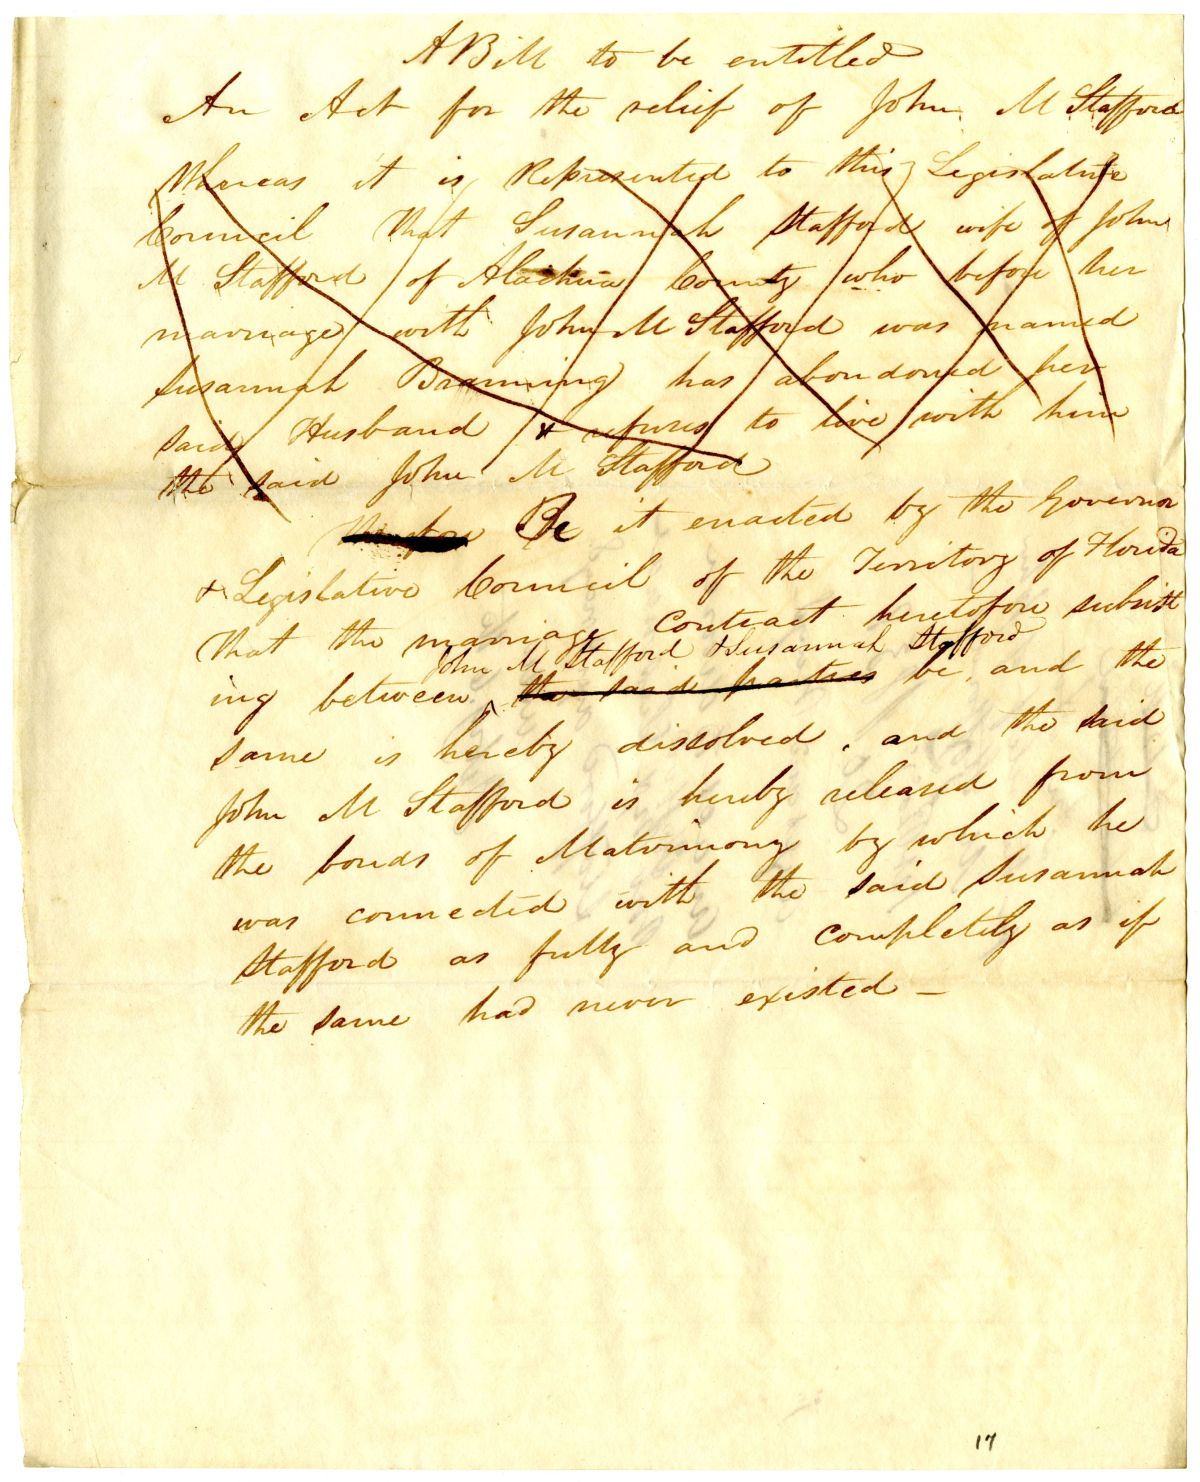 A Bill to be entitled
An Act for the relief of John M Stafford
Whereas it is Represented to this Legislative
Council that Susannah Stafford wife of John
M Stafford of Alachua County who before her
marriage with John M Stafford was named
Susannah Branning has abondoned her
said Husband & refuses to live with him
the said John M Stafford
Therefore Be it enacted by the Governor
& Legislative Council of the Territory of Florida
that the marriage contract heretofore subsist
John M Stafford & Susannah Stafford
ing between ^ the said parties be, and the
same is hereby dissolved, and the said
John M Stafford is hereby released from
the bonds of Matrimony by which he
was connected with the said Susannah
Stafford as fully and completely as if
the same had never existed —
17